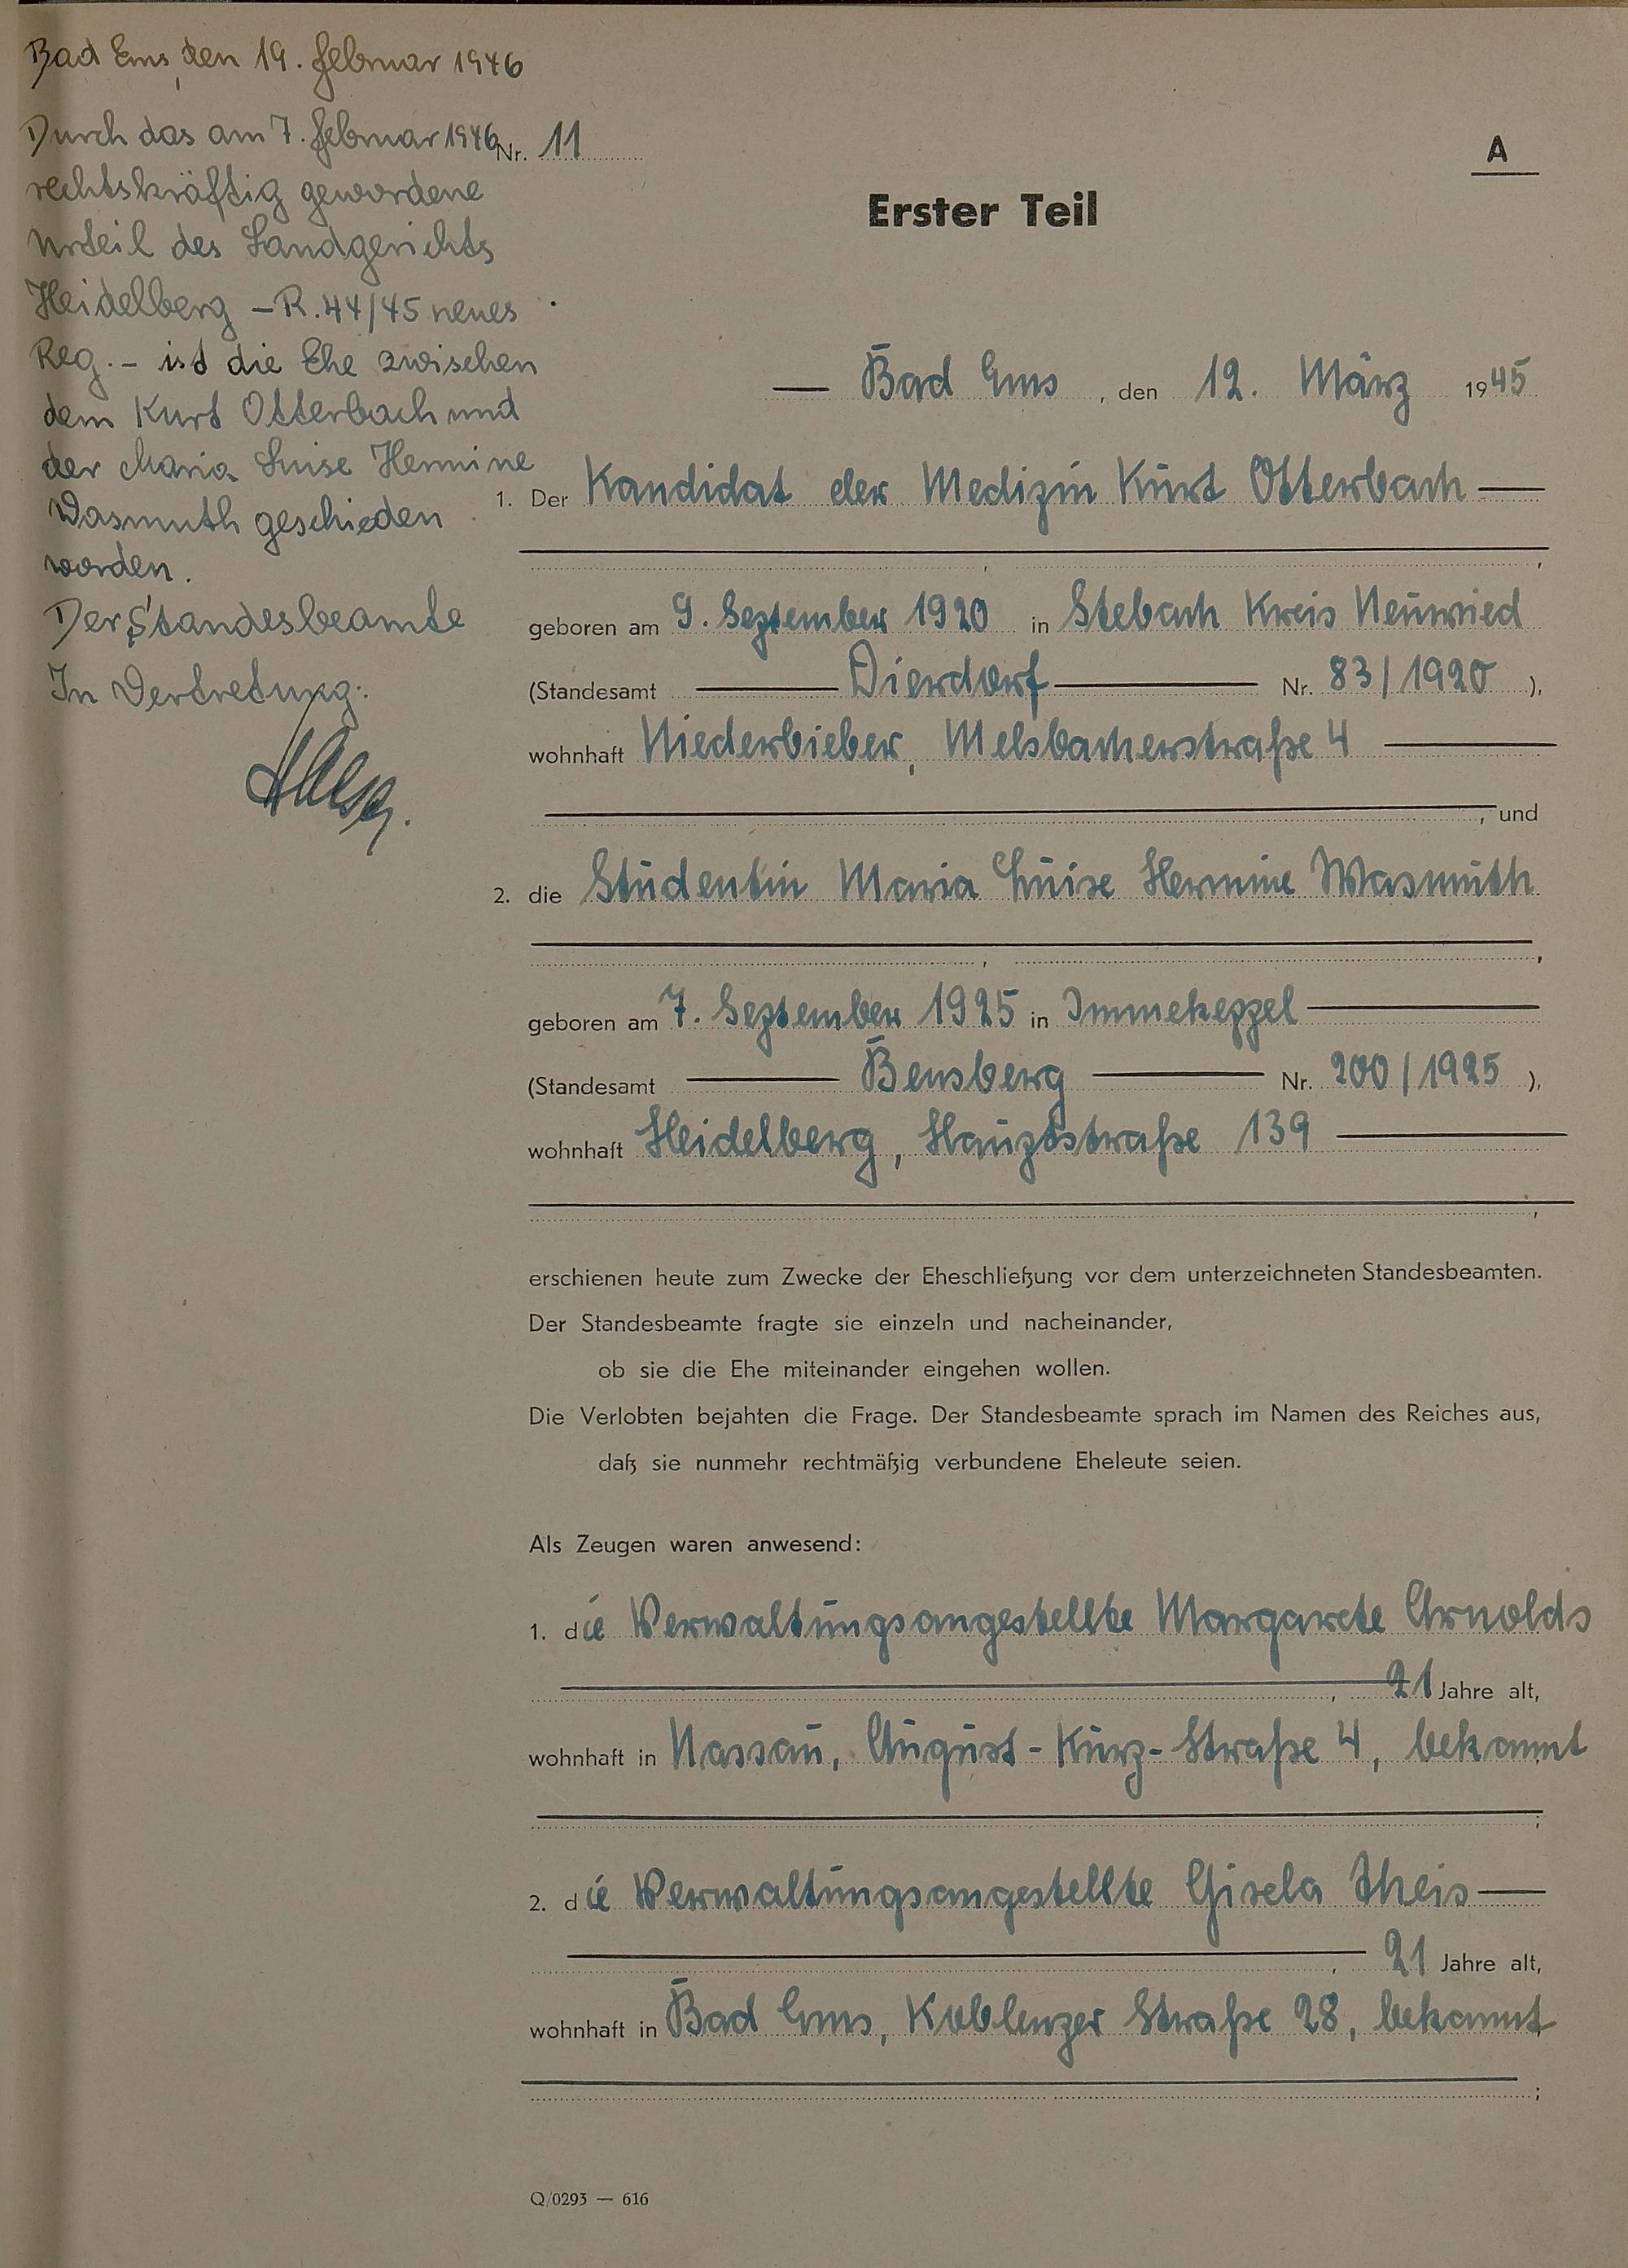 Bad Ems, den 19. Februar 1946
Durch das am 7. Februar 1946
rechtskräftig gewordene
Urteil des Landgerichts
Heidelberg – R. 44/45 neues
Reg. – ist die Ehe zwischen
dem Kurt Otterbach und
der Maria Luise Hermine
Wasmuth geschieden
worden.
Der Standesbeamte
In Vertretung:
Nr. 11
A
Erster Teil
— Bad Ems, den 12. März 1945
1. Der Kandidat der Medizin Kurt Otterbach —
geboren am 9. September 1920 in Stebach Kreis Neuwied
(Standesamt — Dierdorf — Nr. 83/1920),
wohnhaft Niederbieber, Melsbacherstraße 4 —
, und
2. die Studentin Maria Luise Hermine Wasmuth
geboren am 7. September 1925 in Immekeppel —
(Standesamt — Bensberg — Nr. 200/1925),
wohnhaft Heidelberg, Hauptstraße 139 —
erschienen heute zum Zwecke der Eheschließung vor dem unterzeichneten Standesbeamten.
Der Standesbeamte fragte sie einzeln und nacheinander,
ob sie die Ehe miteinander eingehen wollen.
Die Verlobten bejahten die Frage. Der Standesbeamte sprach im Namen des Reiches aus,
daß sie nunmehr rechtmäßig verbundene Eheleute seien.
Als Zeugen waren anwesend:
1. die Verwaltungsangestellte Margarete Arnolds
—, 21 Jahre alt,
wohnhaft in Nassau, August-Kurz-Straße 4, bekannt
;
2. die Verwaltungsangestellte Gisela Theis —
—, 21 Jahre alt,
wohnhaft in Bad Ems, Koblenzer Straße 28, bekannt
;
Q/0293 — 616